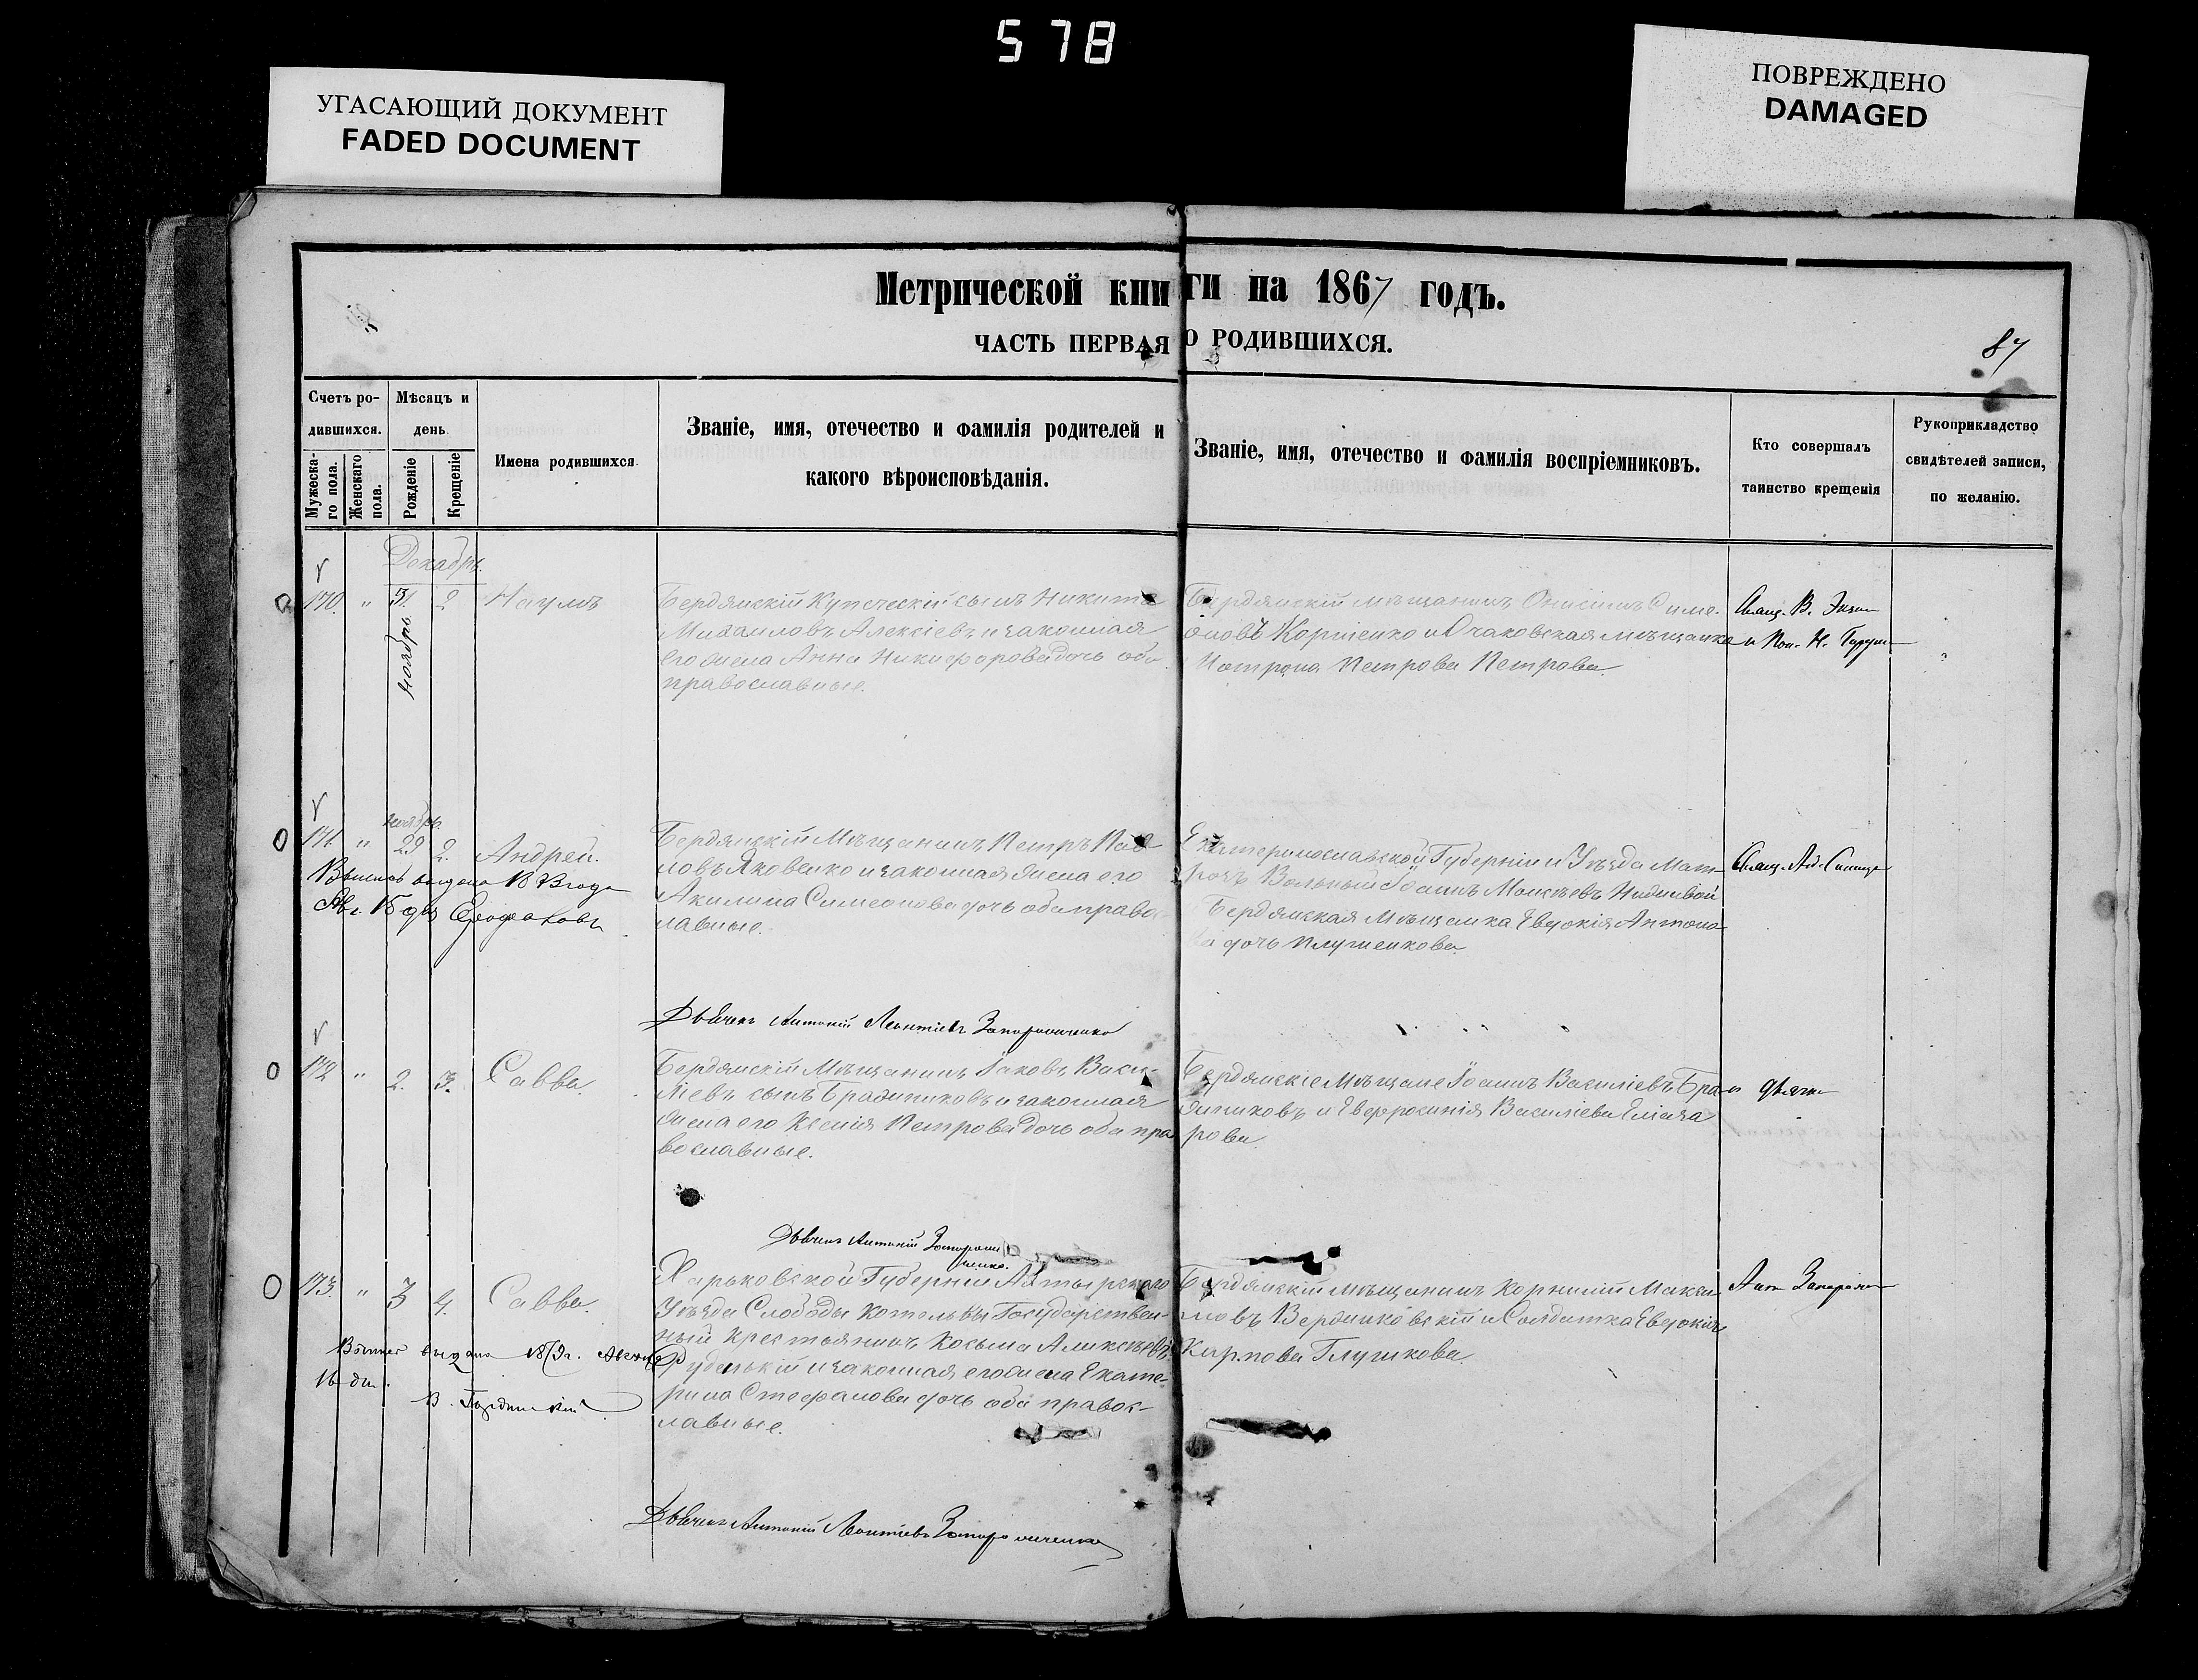 578
УГАСАЮЩИЙ ДОКУМЕНТ
FADED DOCUMENT
ПОВРЕЖДЕНО
DAMAGED
Метрической книги на 1867 годъ.
ЧАСТЬ ПЕРВАЯ О РОДИВШИХСЯ.
87
Счетъ ро-
дившихся.
Мужеска-
го пола.
Женскаго
пола.
Мѣсяцъ и
день
Рожденіе
Крещеніе
Имена родившихся
Званіе, имя, отечество и фамилія родителей и
какого вѣроисповѣданія.
Званіе, имя, отечество и фамилія воспріемниковъ.
Кто совершалъ
таинство крещенія
Рукоприкладство
свидѣтелей записи,
по желанію.
Декабрь.
170. " 2 Наумъ
Ноябрь
Бердянскій Купеческій сынъ Никита
Михаиловъ Алексіевъ и законная
его жена Анна Никифорова дочь оба
православные.
Бердянскій мѣщанинъ Онисимъ Симе-
оновъ Корніенко и Очаковская мѣщанка
Петрова Петрова.
Свящ. В.
Ноябрь.
171. " 29 2. Андрей.
Бердянскій Мѣщанинъ Петръ Пав
ловъ Яковенко и законная жена его
Акилина Симеонова дочь оба правос
лавные.
Екатеринославской Губерніи и Уѣзда Мат-
росъ Вольный Іоаннъ Моисѣевъ
Бердянская Мѣщанка Евдокія Антоно
ва дочь
Свящ.
выдана
Дьячекъ Антоній Леонтіевъ Запорожченко
172 " 2. 3. Савва.
Бердянскій Мѣщанинъ Іаковъ Васи-
ліевъ сынъ Бражниковъ и законная
жена его Ксенія Петрова дочь оба пра
вославные.
Бердянскіе Мѣщане Іоаннъ Василіевъ Бра
жниковъ и Евфросинія Василіева Еліаза
рова.
Дьячекъ Антоній Запорож
ченко.
173. " 3 4. Савва.
Харьковской Губерніи Ахтырскаго
Уѣзда Слободы Котельвы Государствен-
ный Крестьянинъ Косьма Алексѣевъ
и законная его жена Екате-
рина Стефанова дочь оба правос-
лавные.
Бердянскій мѣщанинъ Корнилій Макси
мовъ и Солдатка Евдокія
Карпова Глушкова.
Ант. Запорож
выдана
16 дн.
В.
Дьячекъ Антоній Леонтіевъ Запорожченко